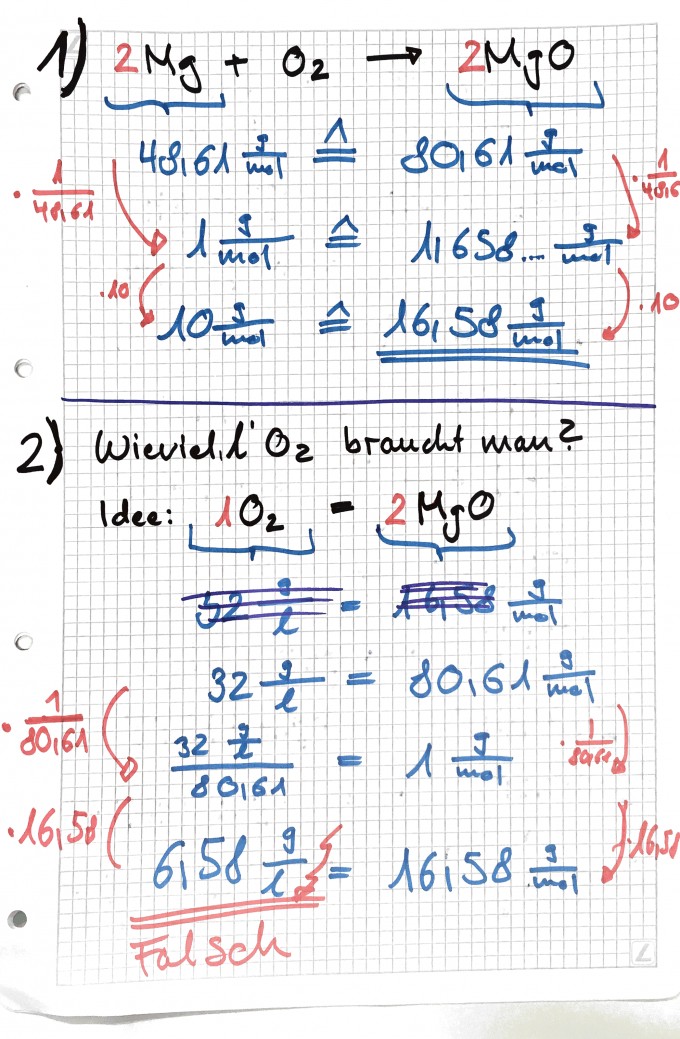 1) 2Mg + O₂ → 2MgO
48,61 g/mol ≙ 80,61 g/mol
· 1/48,61 · 1/48,6
1 g/mol ≙ 1,658... g/mol
·10 ·10
10 g/mol ≙ 16,58 g/mol
2) Wieviel 'l' O₂ braucht man?
Idee: 1O₂ = 2MgO
32 g/l = 16,58 g/mol
32 g/l = 80,61 g/mol
· 1/80,61 · 1/80,61
32 g/l / 80,61 = 1 g/mol
·16,58 ·16,58
6,58 g/l = 16,58 g/mol
Falsch